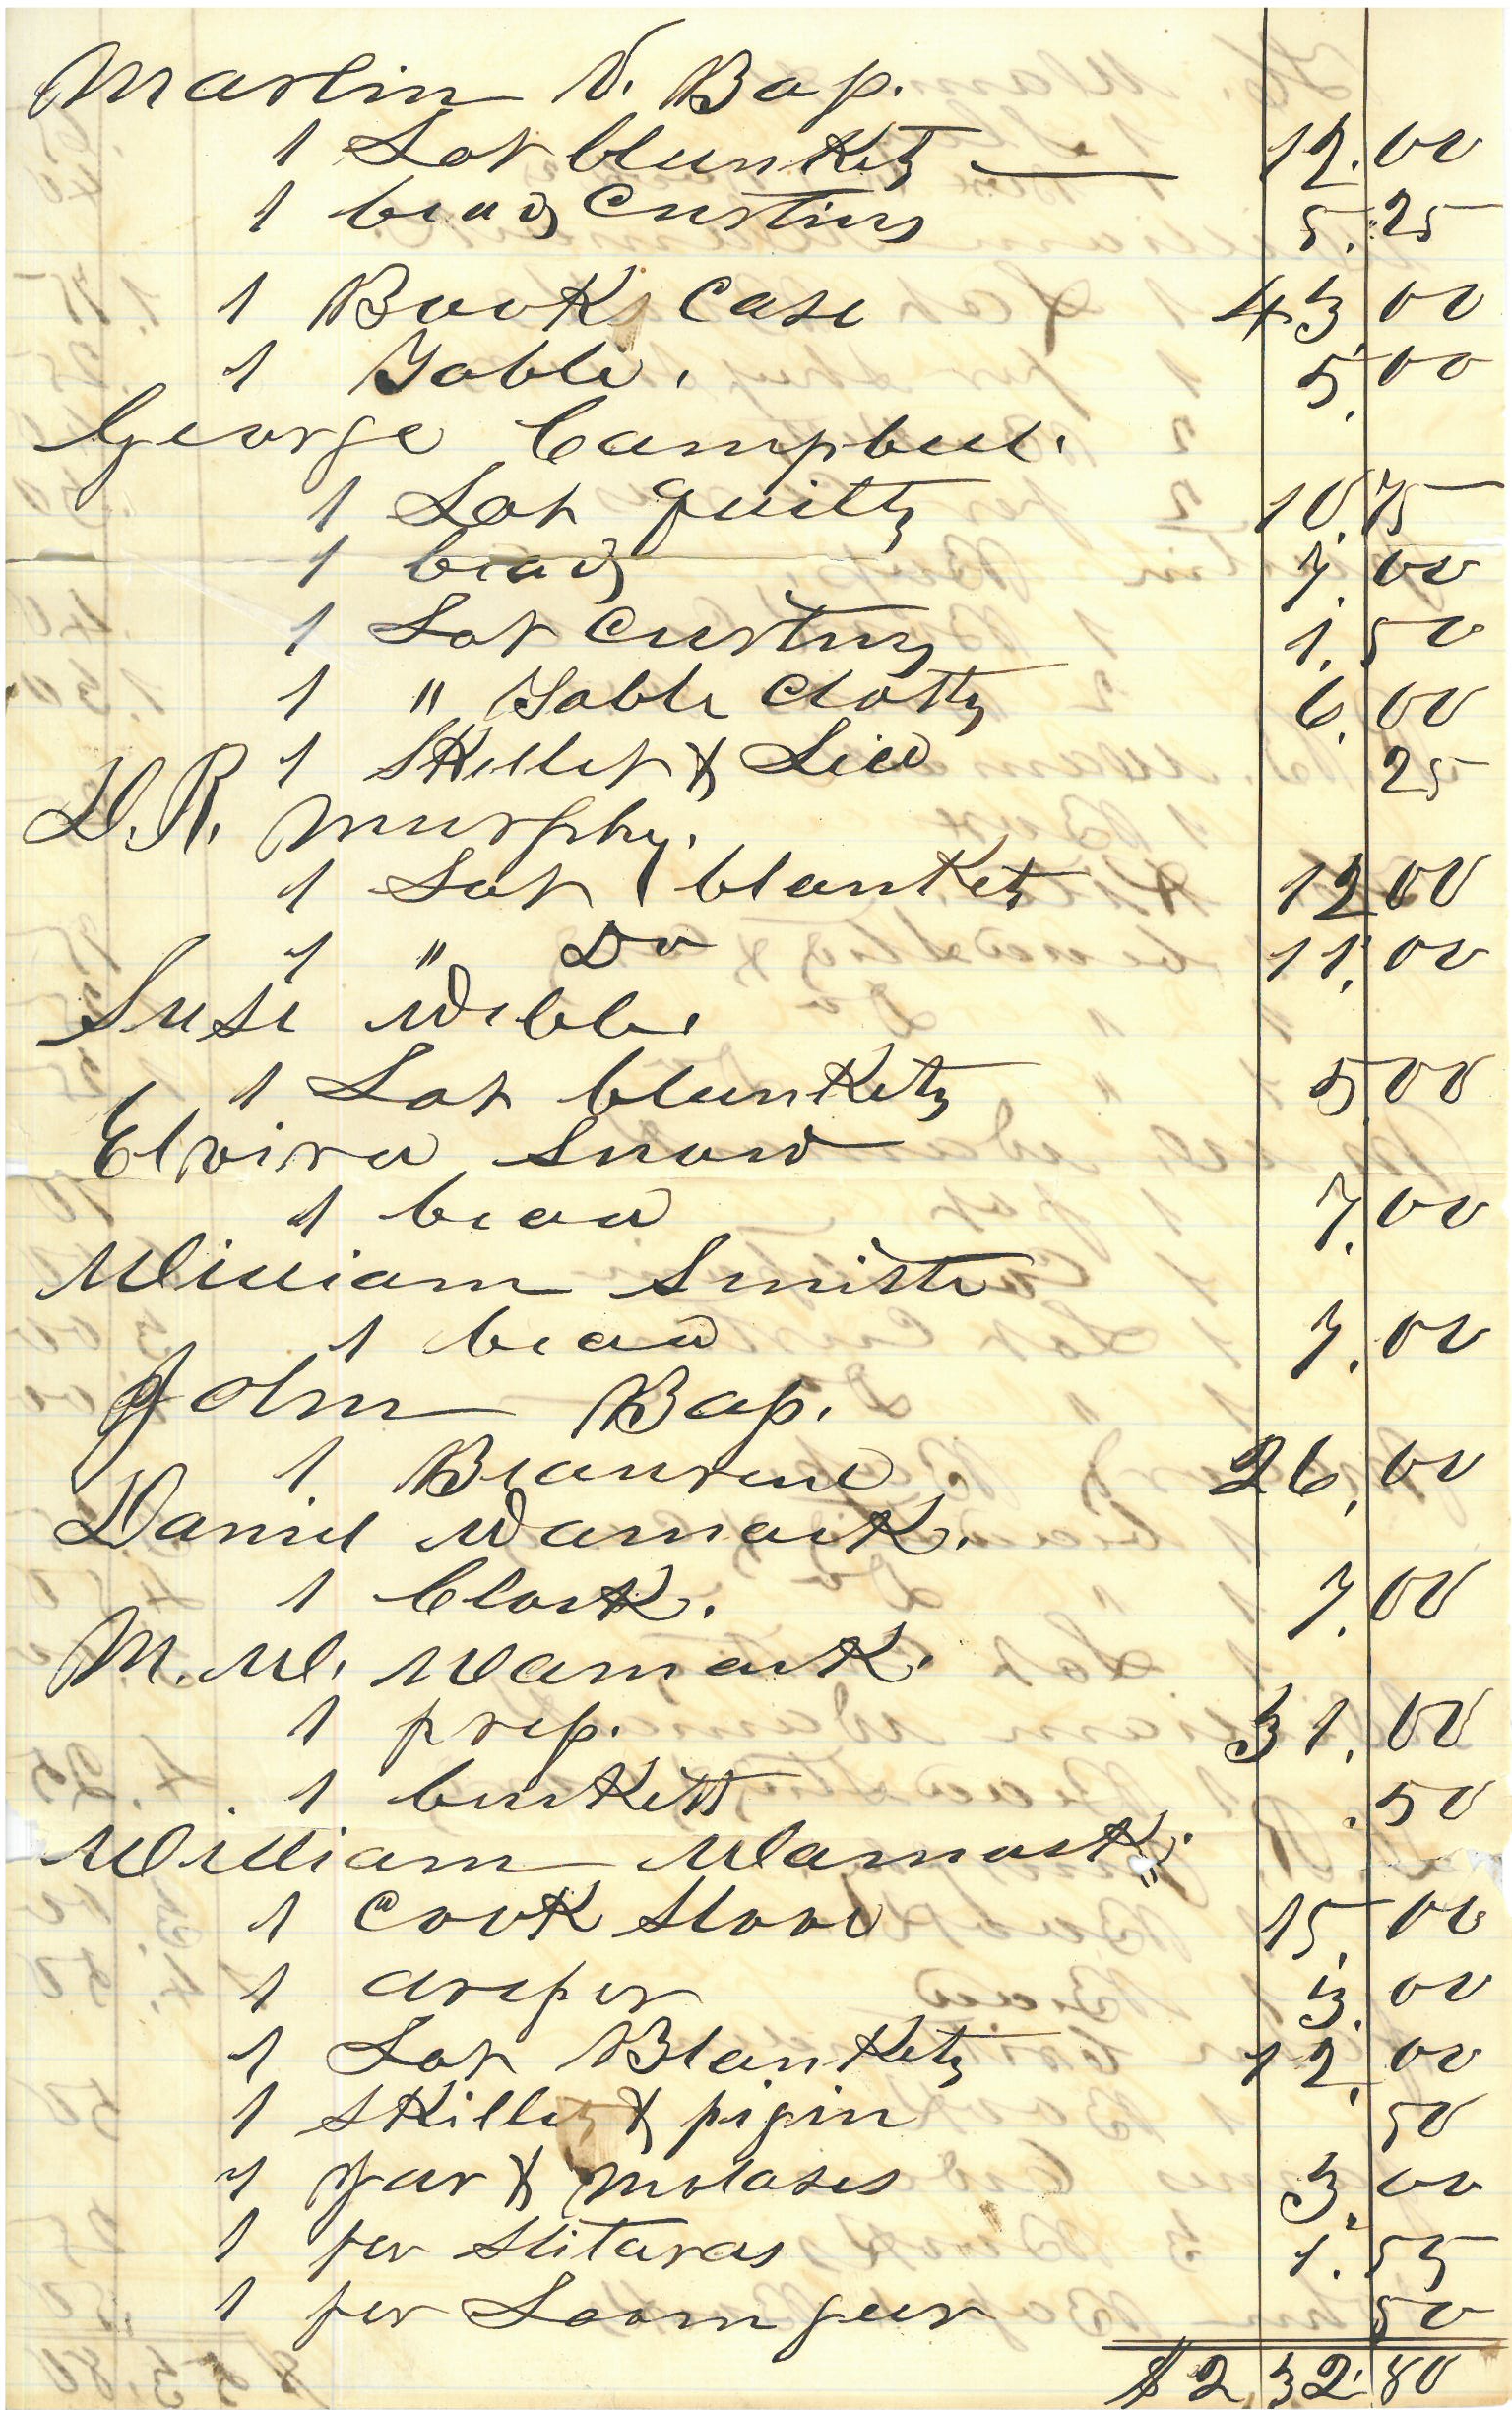 Martin V. Bap.
1 Lot blunkets — 12.00
1 beads Custins 5.25
1 Books Case 43.00
1 Table. 5.00
George Campbell.
1 Lot quilts 10.75
1 beads 7.00
1 Lot Custins 1.50
1 " Table Cloths 6.00
1 Skillet & Lid 25
D.R. Murphy.
1 Lot blankets 12.00
1 " Do 11.00
Susi Webb.
1 Lot blunkets 5.00
Elvira Snow
1 bead 7.00
William Smith
1 bead 7.00
John Bap.
1 26.00
Daniel Wamack.
1 Clock. 7.00
M. W. Wamack.
1 prep. 31.00
1 buskitt .50
William Wamack.
1 Cook Stove 15.00
1 3.00
1 Lot Blankets 12.00
1 Skillet & pigin 50
1 Jar & Molases 3.00
1 par Stitaras 1.55
1 par Loom gear 50
$232.80